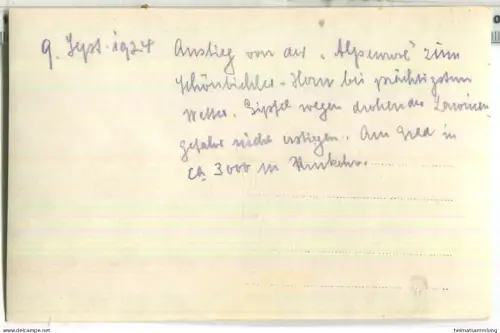 9. Sept. 1924 Anstieg von der „Alpenrose" zum
Schönbichler-Horn bei prächtigstem
Wetter. Gipfel wegen drohender Lawinen
gefahr nicht erstiegen. Am Grad in
ca 3000 m Umkehr.
© delcampe.net
heimatsammlung